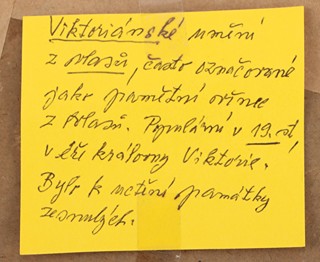 Viktoriánské umění
z vlasů, často označované
jako pamětní věnec
z vlasů. Populární v 19. st,
v éře královny Viktorie.
Bylo k uctění památky
zesnulých.